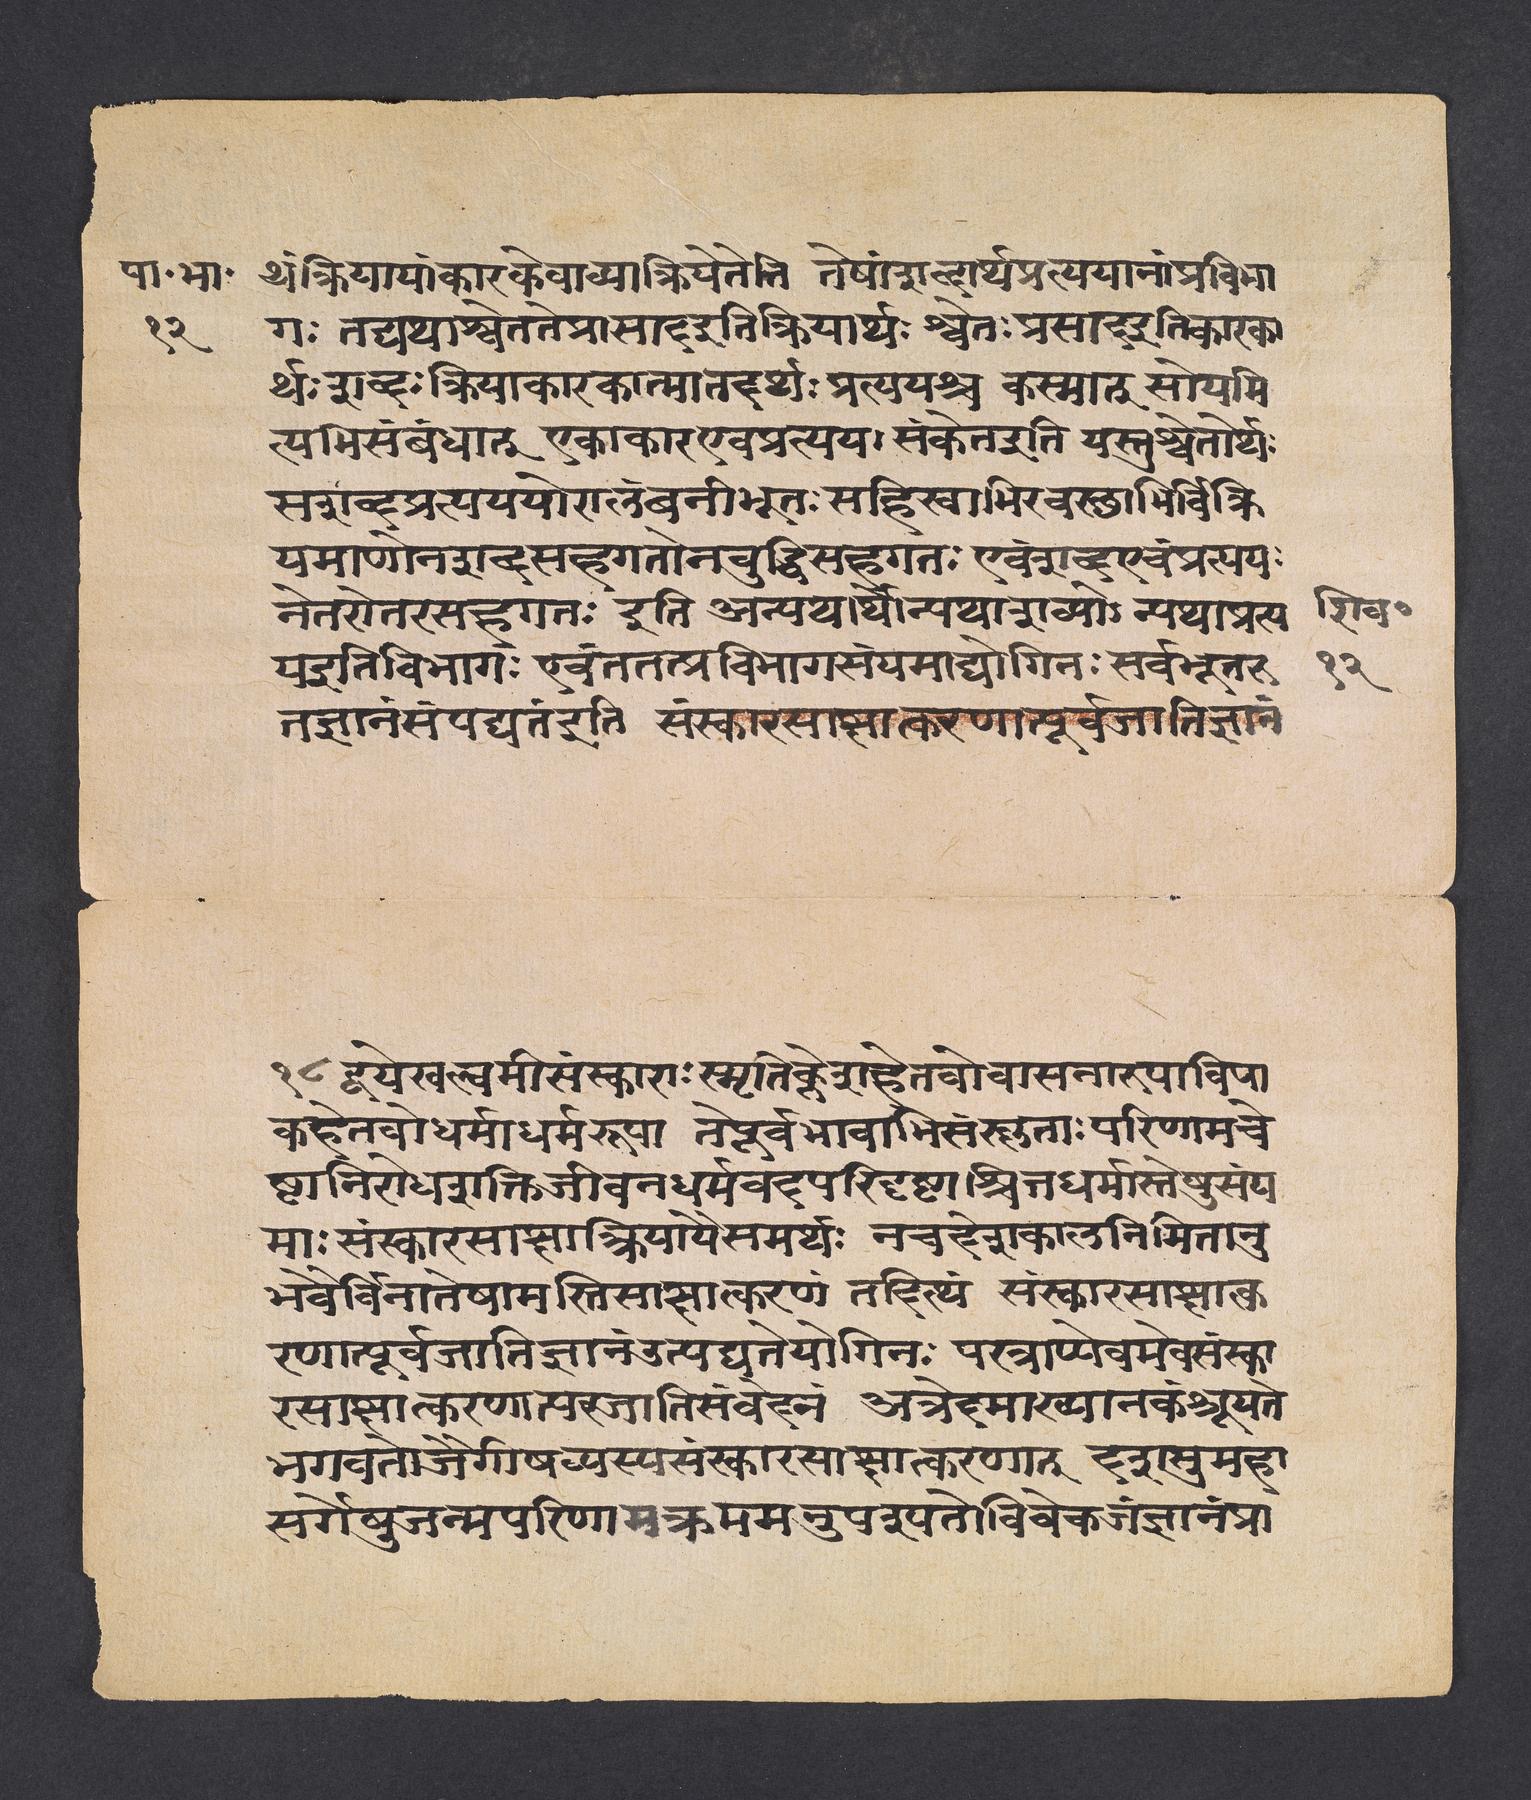 पा॰भा॰
१२
थंक्रियायांकारकेवाव्याक्रियेतेति तेषांशब्दार्थप्रत्ययानांप्रविभा
गः तद्यथाश्वेततेप्रासादइतिक्रियार्थः श्वेतःप्रसादइतिकारका
र्थःशब्दःक्रियाकारकात्मातदर्थः प्रत्ययश्च कस्मात् सोयमि
त्यभिसंबंधात् एकाकारएवप्रत्यय। संकेतइति यस्तुश्वेतोर्थः
सशब्दप्रत्यययोरालंबनीभूतः सहिस्वाभिरवस्थाभिर्विक्रि
यमाणोनशब्दसहगतोनबुद्धिसहगतः एवंशब्दएवंप्रत्ययः
नेतरोतरसहगतः इति अन्यथार्थोन्यथाशब्दोऽन्यथाप्रत्य
यइतिविभागः एवंततत्प्रविभागसंयमाद्योगिनः सर्वभूतरु
तज्ञानंसंपद्यतंइति संस्कारसाक्षात्करणात्पूर्वजातिज्ञानं
शिव॰
१२
१८ द्वयेखल्वमीसंस्काराः स्मृतिक्लेशहेतवोवासनारुपाविपा
कहेतवोधर्माधर्मरूपा तेपूर्वभावाभिसंस्कृताः परिणामचे
ष्टानिरोधशक्तिजीवनधर्मवदपरिदृष्टाश्चित्तधर्मास्तेषुसंय
माः संस्कारसाक्षाक्रियायैसमर्थः नचदेशकालनिमितानु
भवेर्विनातेषामस्तिसाक्षात्करणं तदित्थं संस्कारसाक्षात्क
रणात्पूर्वजातिज्ञानंउत्पद्यतेयोगिनः परत्राप्येवमेवसंस्का
रसाक्षात्करणात्परजातिसंवेदनं अत्रेदमाख्यानकंश्रूयते
भगवतोजैगीषव्यस्यसंस्कारसाक्षात्करणात् दशसुमहा
सर्गेषुजन्मपरिणामक्रममनुपश्यतोविवेकजंज्ञानंप्रा